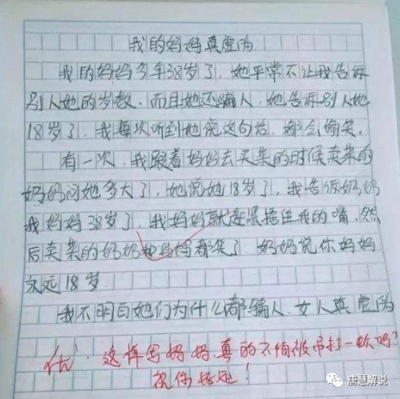 我的妈妈真虚伪
我的妈妈今年38岁了，她平常不让我告诉
别人她的岁数，而且她还骗人，她告诉别人她
18岁了，我每次听到她说这句话，都会偷笑。
有一次，我跟着妈妈去买菜的时候卖菜的
奶奶问她多大了，她说她18岁了，我告诉奶奶
我妈妈38岁了，我妈妈就赶紧捂住我的嘴，然
后卖菜的奶奶和妈妈都笑了，奶奶说你妈妈
永远18岁。
我不明白她们为什么都骗人，女人真虚伪
优：这样写妈妈真的不怕被吊打一顿吗？
祝你好运！
唐慧解说